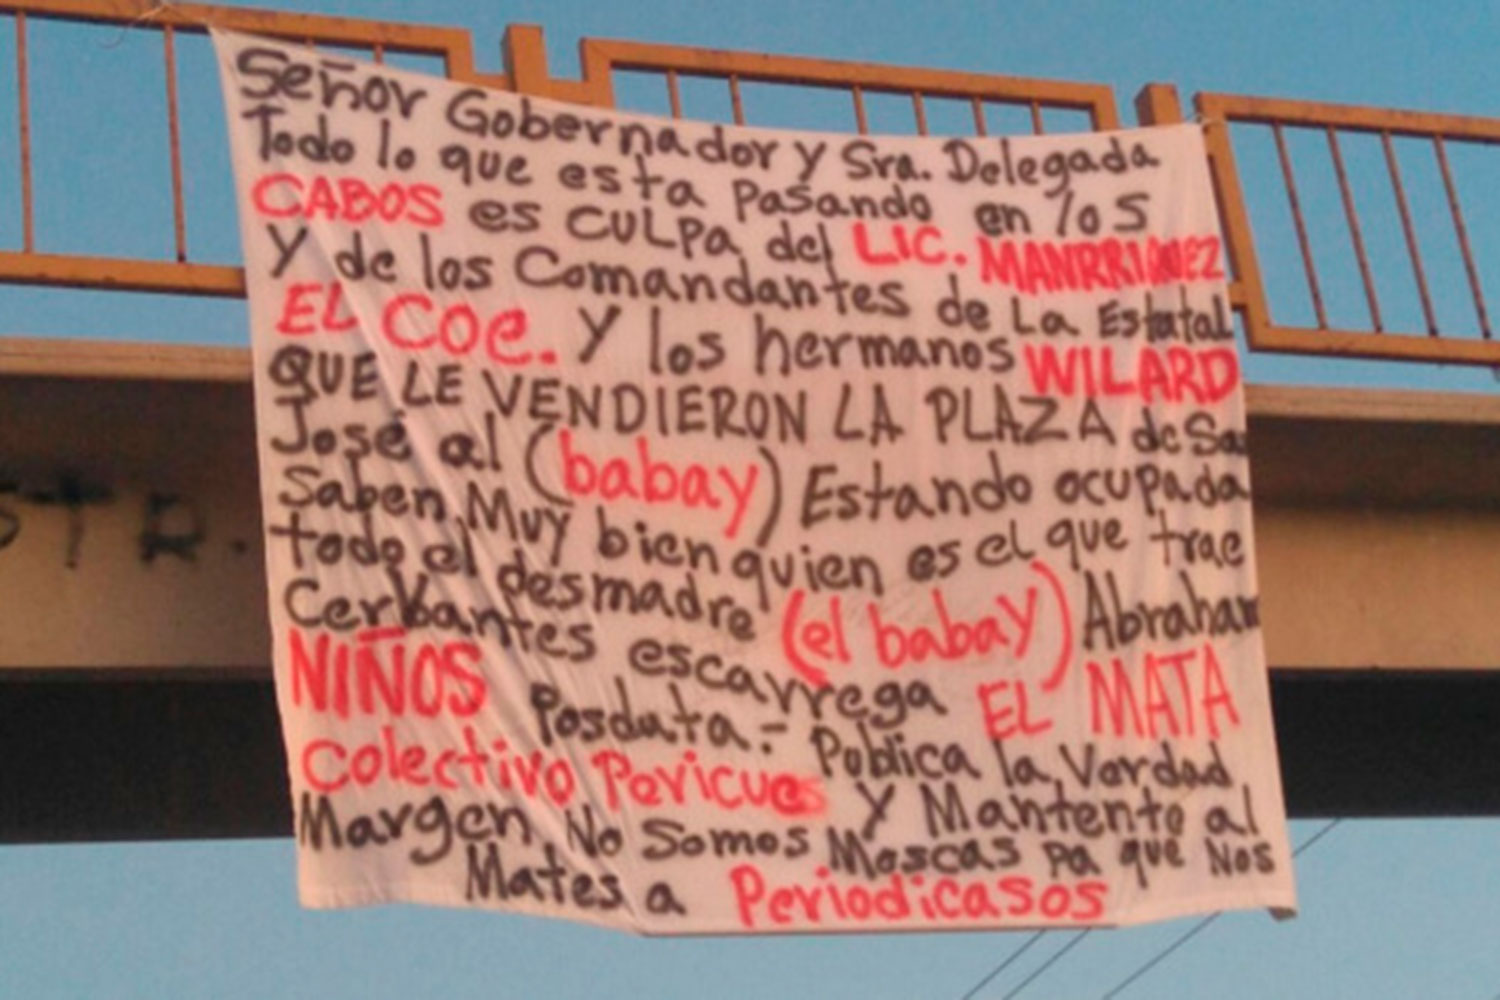 Señor Gobernador y Sra. Delegada
Todo lo que esta pasando en los
CABOS es CULPA del LIC. MANRRIQUEZ
Y de los Comandantes de La Estatal
EL COe. Y los hermanos WILARD
QUE LE VENDIERON LA PLAZA de Sa
José al (babay) Estando ocupada
Saben Muy bien quien es el que trae
todo el desmadre (el babay) Abraham
Cerbantes escarrega EL MATA
NIÑOS Posdata.- Publica la Verdad
Colectivo Pericues Y Mantente al
Margen No Somos Moscas pa que Nos
Mates a Periodicasos
STR.